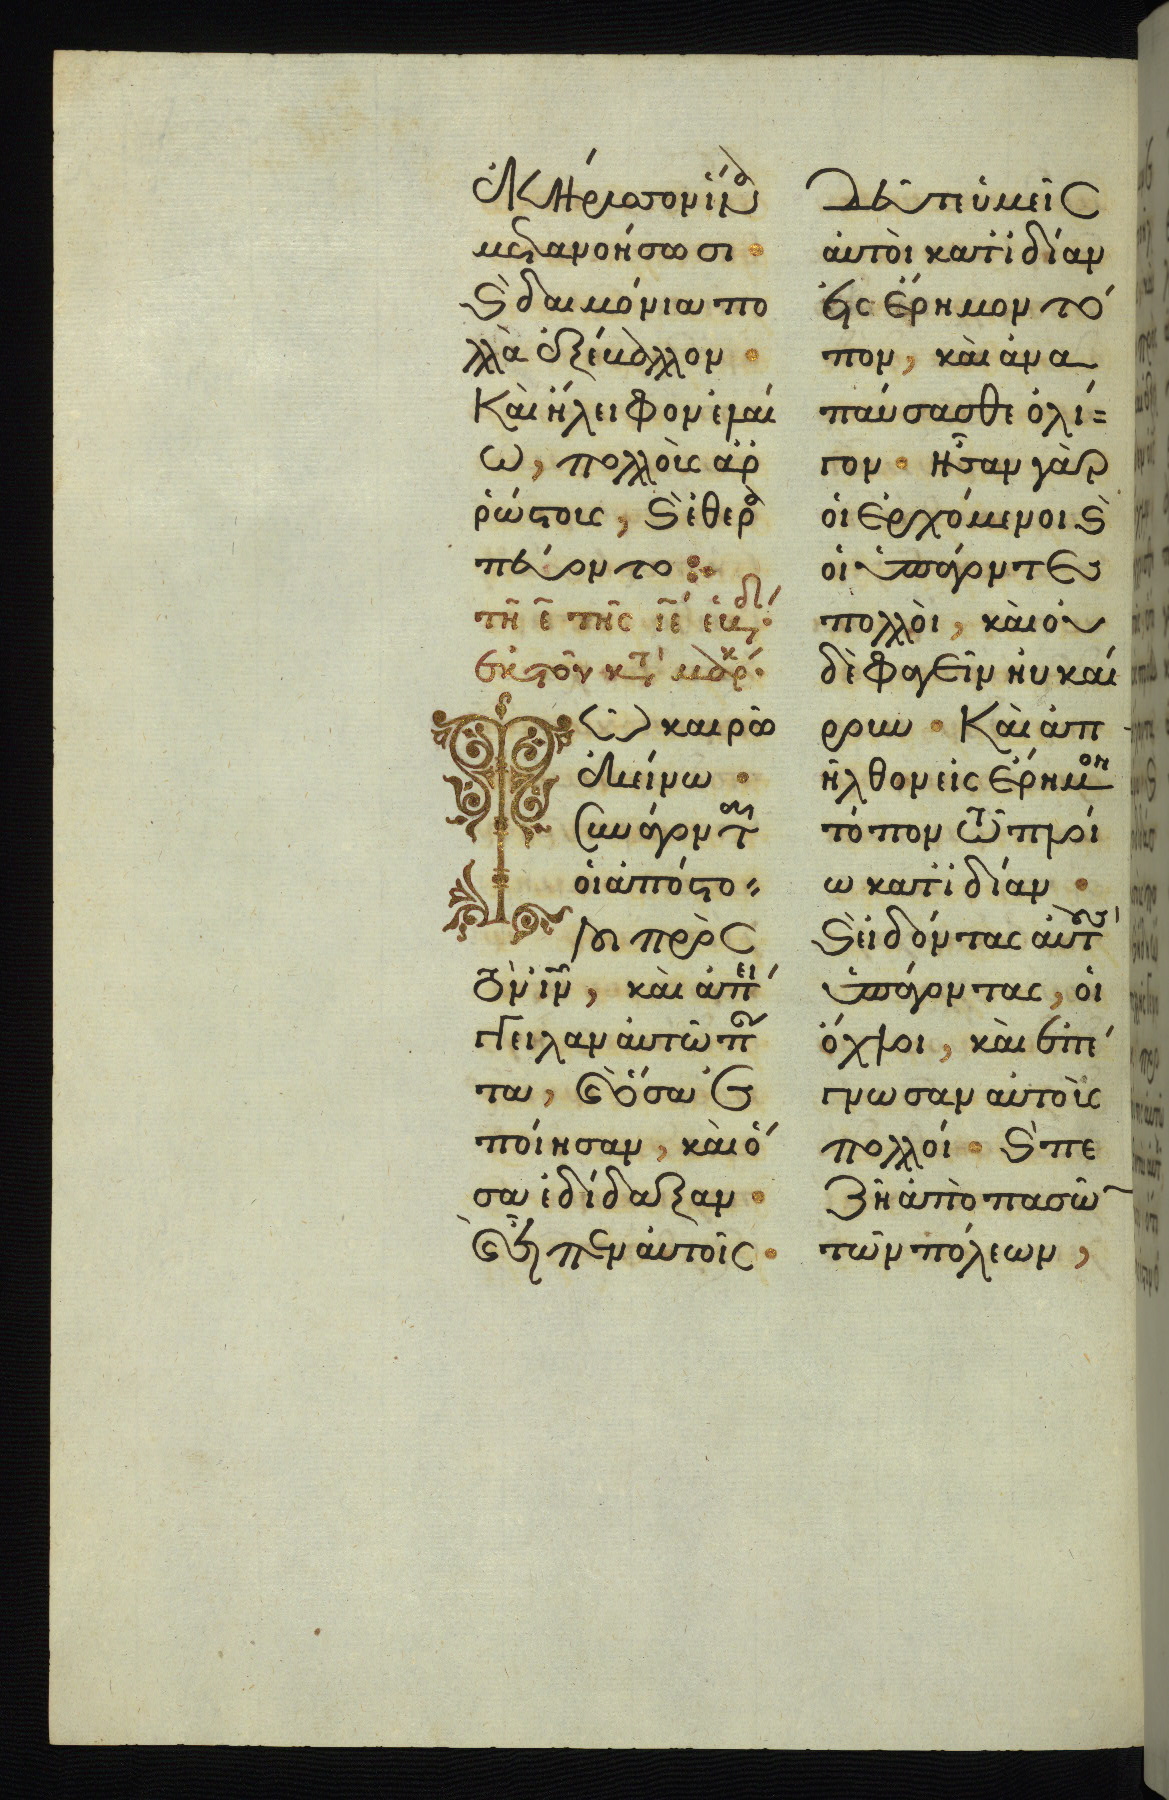 ἐκήρυσσον ἵνα
μετανοήσωσι·
ϗ δαιμόνια πο
λλὰ ἐξέβαλλον·
Καὶ ἤλειφον ἐλαί
ω, πολλοὺς ἀρ
ρώστους, ϗ ἐθερ
πεύοντο:
τῆ ε τῆς ιε ἑβδ.
ἐκ τοῦ κτ μάρκ.
Τῶ καιρῶ
ἐκείνω·
Συνάγοντ
οἱ ἀπόστο=
λοι πρὸς
τὸν ιν, καὶ ἀπή
γγειλαν αὐτῶ πν
τα, ϗ ὅσα ἐ
ποίησαν, καὶ ὅ
σα ἐδίδαξαν·
ϗ εἶπεν αὐτοῖς·
Δεῦτε ὑμεῖς
αὐτοὶ κατιδίαν
εἰς ἔρημον τό
πον, καὶ ἀνα
παύσασθε ὀλί=
γον· ἦσαν γὰρ
οἱ ἐρχόμενοι ϗ
οἱ ὑπάγοντες
πολλοὶ, καὶ οὐ
δὲ φαγεῖν ηὐκαί
ρουν· Καὶ ἀπ
ῆλθον εἰς ἔρημον
τόπον τῶ πλοί
ω κατιδίαν·
ϗ εἰδόντας αὐτ
ὑπάγοντας, οἱ
ὄχλοι, καὶ ἐπέ
γνωσαν αὐτοὺς
πολλοί· ϗ πε
ζῆ ἀπὸ πασῶ
τῶν πόλεων,